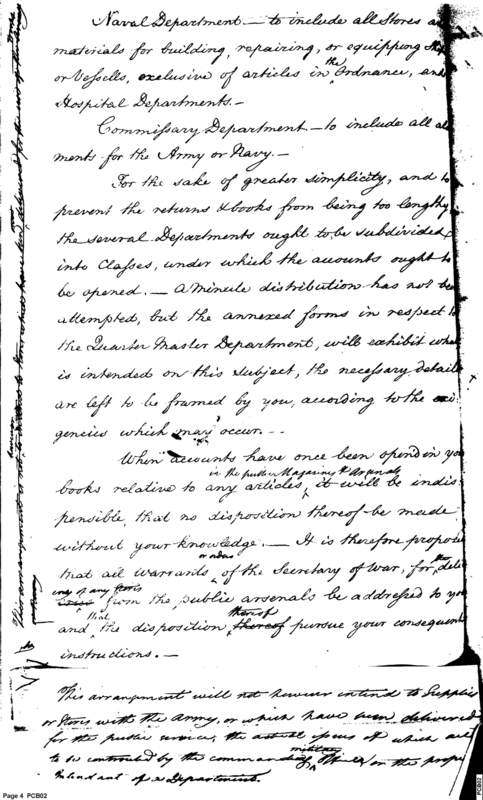 Naval Department — to include all Stores a
materials for building, repairing, or equipping Sh
or Vessells, exclusive of articles in the Ordnance, and
Hospital Departments. —
Commissary Department — to include all al
ments for the Army or Navy. —
For the sake of greater simplicity, and to
prevent the returns & books from being too lengthy
the several Departments ought to be subdivided
into Classes, under which the accounts ought to
be opened. — A minute distribution has not be
attempted, but the annexed forms in respect t
the Quarter Master Department, will exhibit wha
is intended on this subject, the necessary detail
are left to be framed by you, according to the exi
gencies which may occur. —
When accounts have once been opend in yo
in the public Magazines & Arsenals
books relative to any articles, it will be indis
pensible, that no disposition thereof be made
without your knowledge. — It is therefore propose
or orders
that all warrants, of the Secretary of War, for the deli
very of any stores
from the public arsenals be addressed to yo
that thereof
and, the disposition thereof pursue your consequent
instructions. —
This arrangement will not however extend to Supplies
or Stores with the Army, or which have been delivered
for the public service, the actual issues of which are
military
to be controuled by the commanding Officer or the prope
Intendant of a Department.
Page 4 PCB02
PCB02